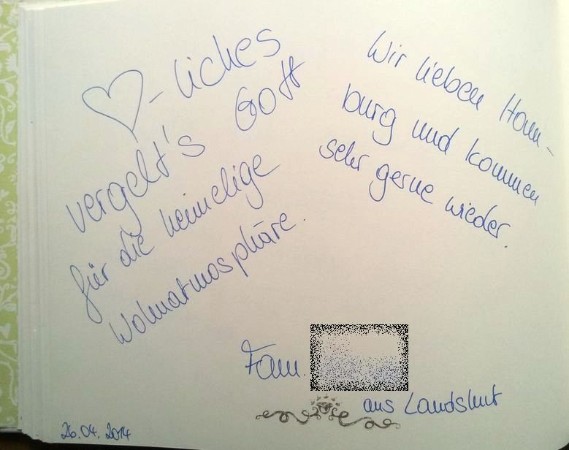 ♡-liches
vergelt's Gott
für die heimelige
Wohnatmosphäre.
Wir lieben Ham-
burg und kommen
sehr gerne wieder.
Fam.
aus Landshut
26.04.2014